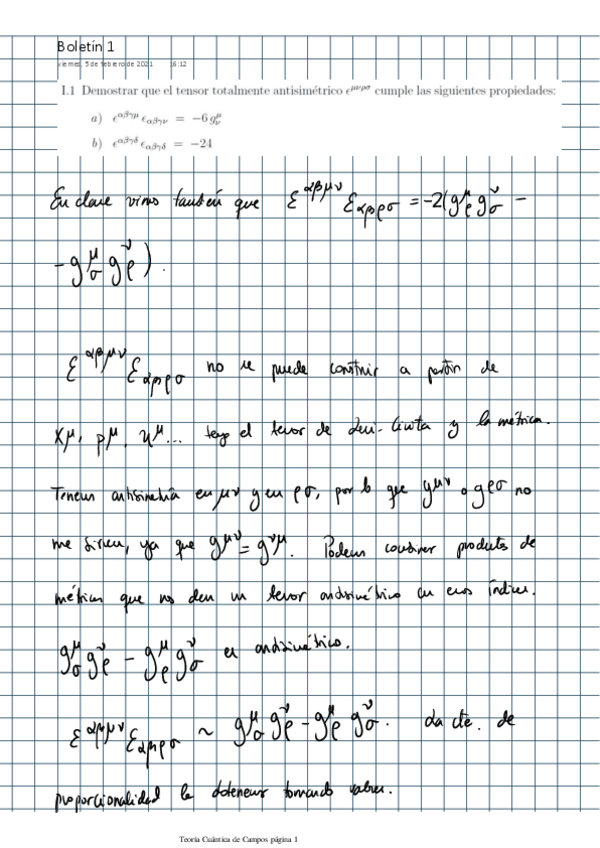 Boletín 1
viernes, 5 de febrero de 2021 16:12
I.1 Demostrar que el tensor totalmente antisimétrico ϵ^{μνρσ} cumple las siguientes propiedades:
a) ϵ^{αβγμ} ϵ_{αβγν} = −6 g^μ_ν
b) ϵ^{αβγδ} ϵ_{αβγδ} = −24
En clase vimos también que ε^{αβμν} ε_{αβρσ} = -2(g^μ_ρ g^ν_σ −
− g^μ_σ g^ν_ρ).
ε^{αβμν} ε_{αβρσ} no se puede construir a partir de
x^μ, p^μ, u^μ... tengo el tensor de Levi-Civita y la métrica.
Tenemos antisimetría en μν y en ρσ, por lo que g^{μν} o g_{ρσ} no
me sirven, ya que g^{μν} = g^{νμ}. Podemos construir productos de
métricas que nos den un tensor antisimétrico en esos índices.
g^μ_σ g^ν_ρ − g^μ_ρ g^ν_σ es antisimétrico.
ε^{αβμν} ε_{αβρσ} ~ g^μ_σ g^ν_ρ − g^μ_ρ g^ν_σ. La cte. de
proporcionalidad la obtenemos tomando valores.
Teoría Cuántica de Campos página 1